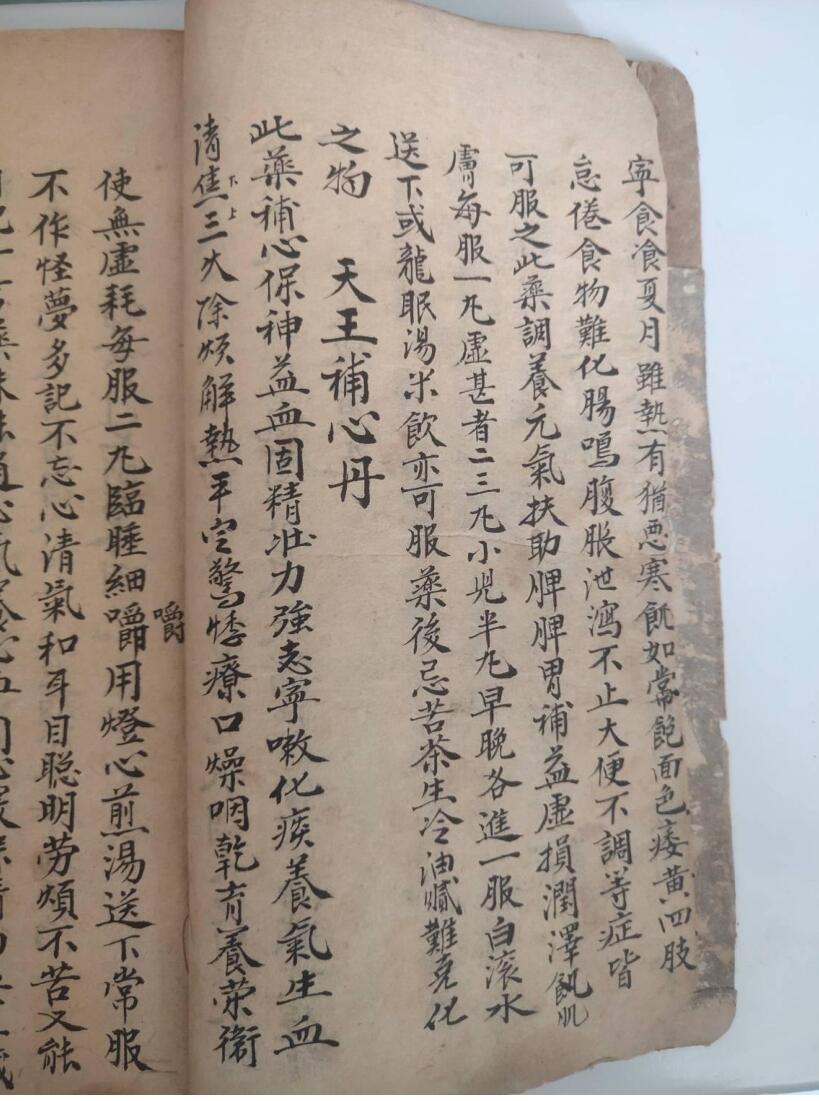 寧食飡夏月雖熱有猶惡寒飢如常飽面色痿黃四肢
怠倦食物難化腸鳴腹脹泄瀉不止大便不調等症皆
可服之此藥調養元氣扶助脾脾胃補益虛損潤澤飢肌
膚每服一丸虛甚者二三丸小児半丸早晚各進一服白滚水
送下或龍眼湯米飲亦可服藥後忌苦茶生冷油膩難克化
之物 天王補心丹
此藥補心保神益血固精壯力強志寧嗽化痰養氣生血
清焦下上三火除煩解熱平定驚悸療口燥咽乾育養荣衛
使無虛耗每服二丸臨睡細嚼嚼用燈心煎湯送下常服
不作怪夢多記不忘心清氣和耳目聪明劳煩不苦又能